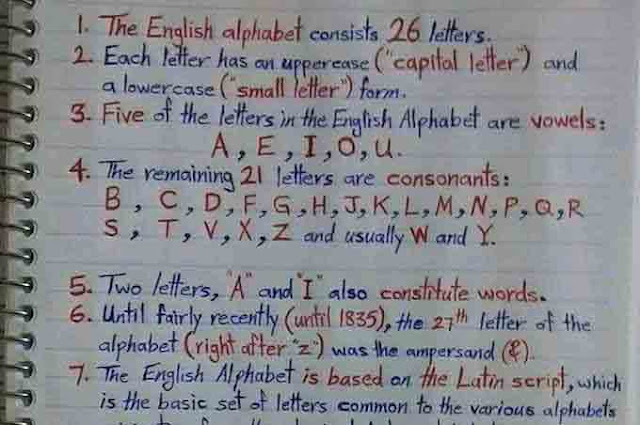 1. The English alphabet consists 26 letters.
2. Each letter has an uppercase ("capital letter") and
a lowercase ("small letter") form.
3. Five of the letters in the English Alphabet are vowels:
A, E, I, O, U.
4. The remaining 21 letters are consonants:
B, C, D, F, G, H, J, K, L, M, N, P, Q, R
S, T, V, X, Z and usually W and Y.
5. Two letters, "A" and "I" also constitute words.
6. Until fairly recently (until 1835), the 27th letter of the
alphabet (right after "z") was the ampersand (&).
7. The English Alphabet is based on the Latin script, which
is the basic set of letters common to the various alphabets